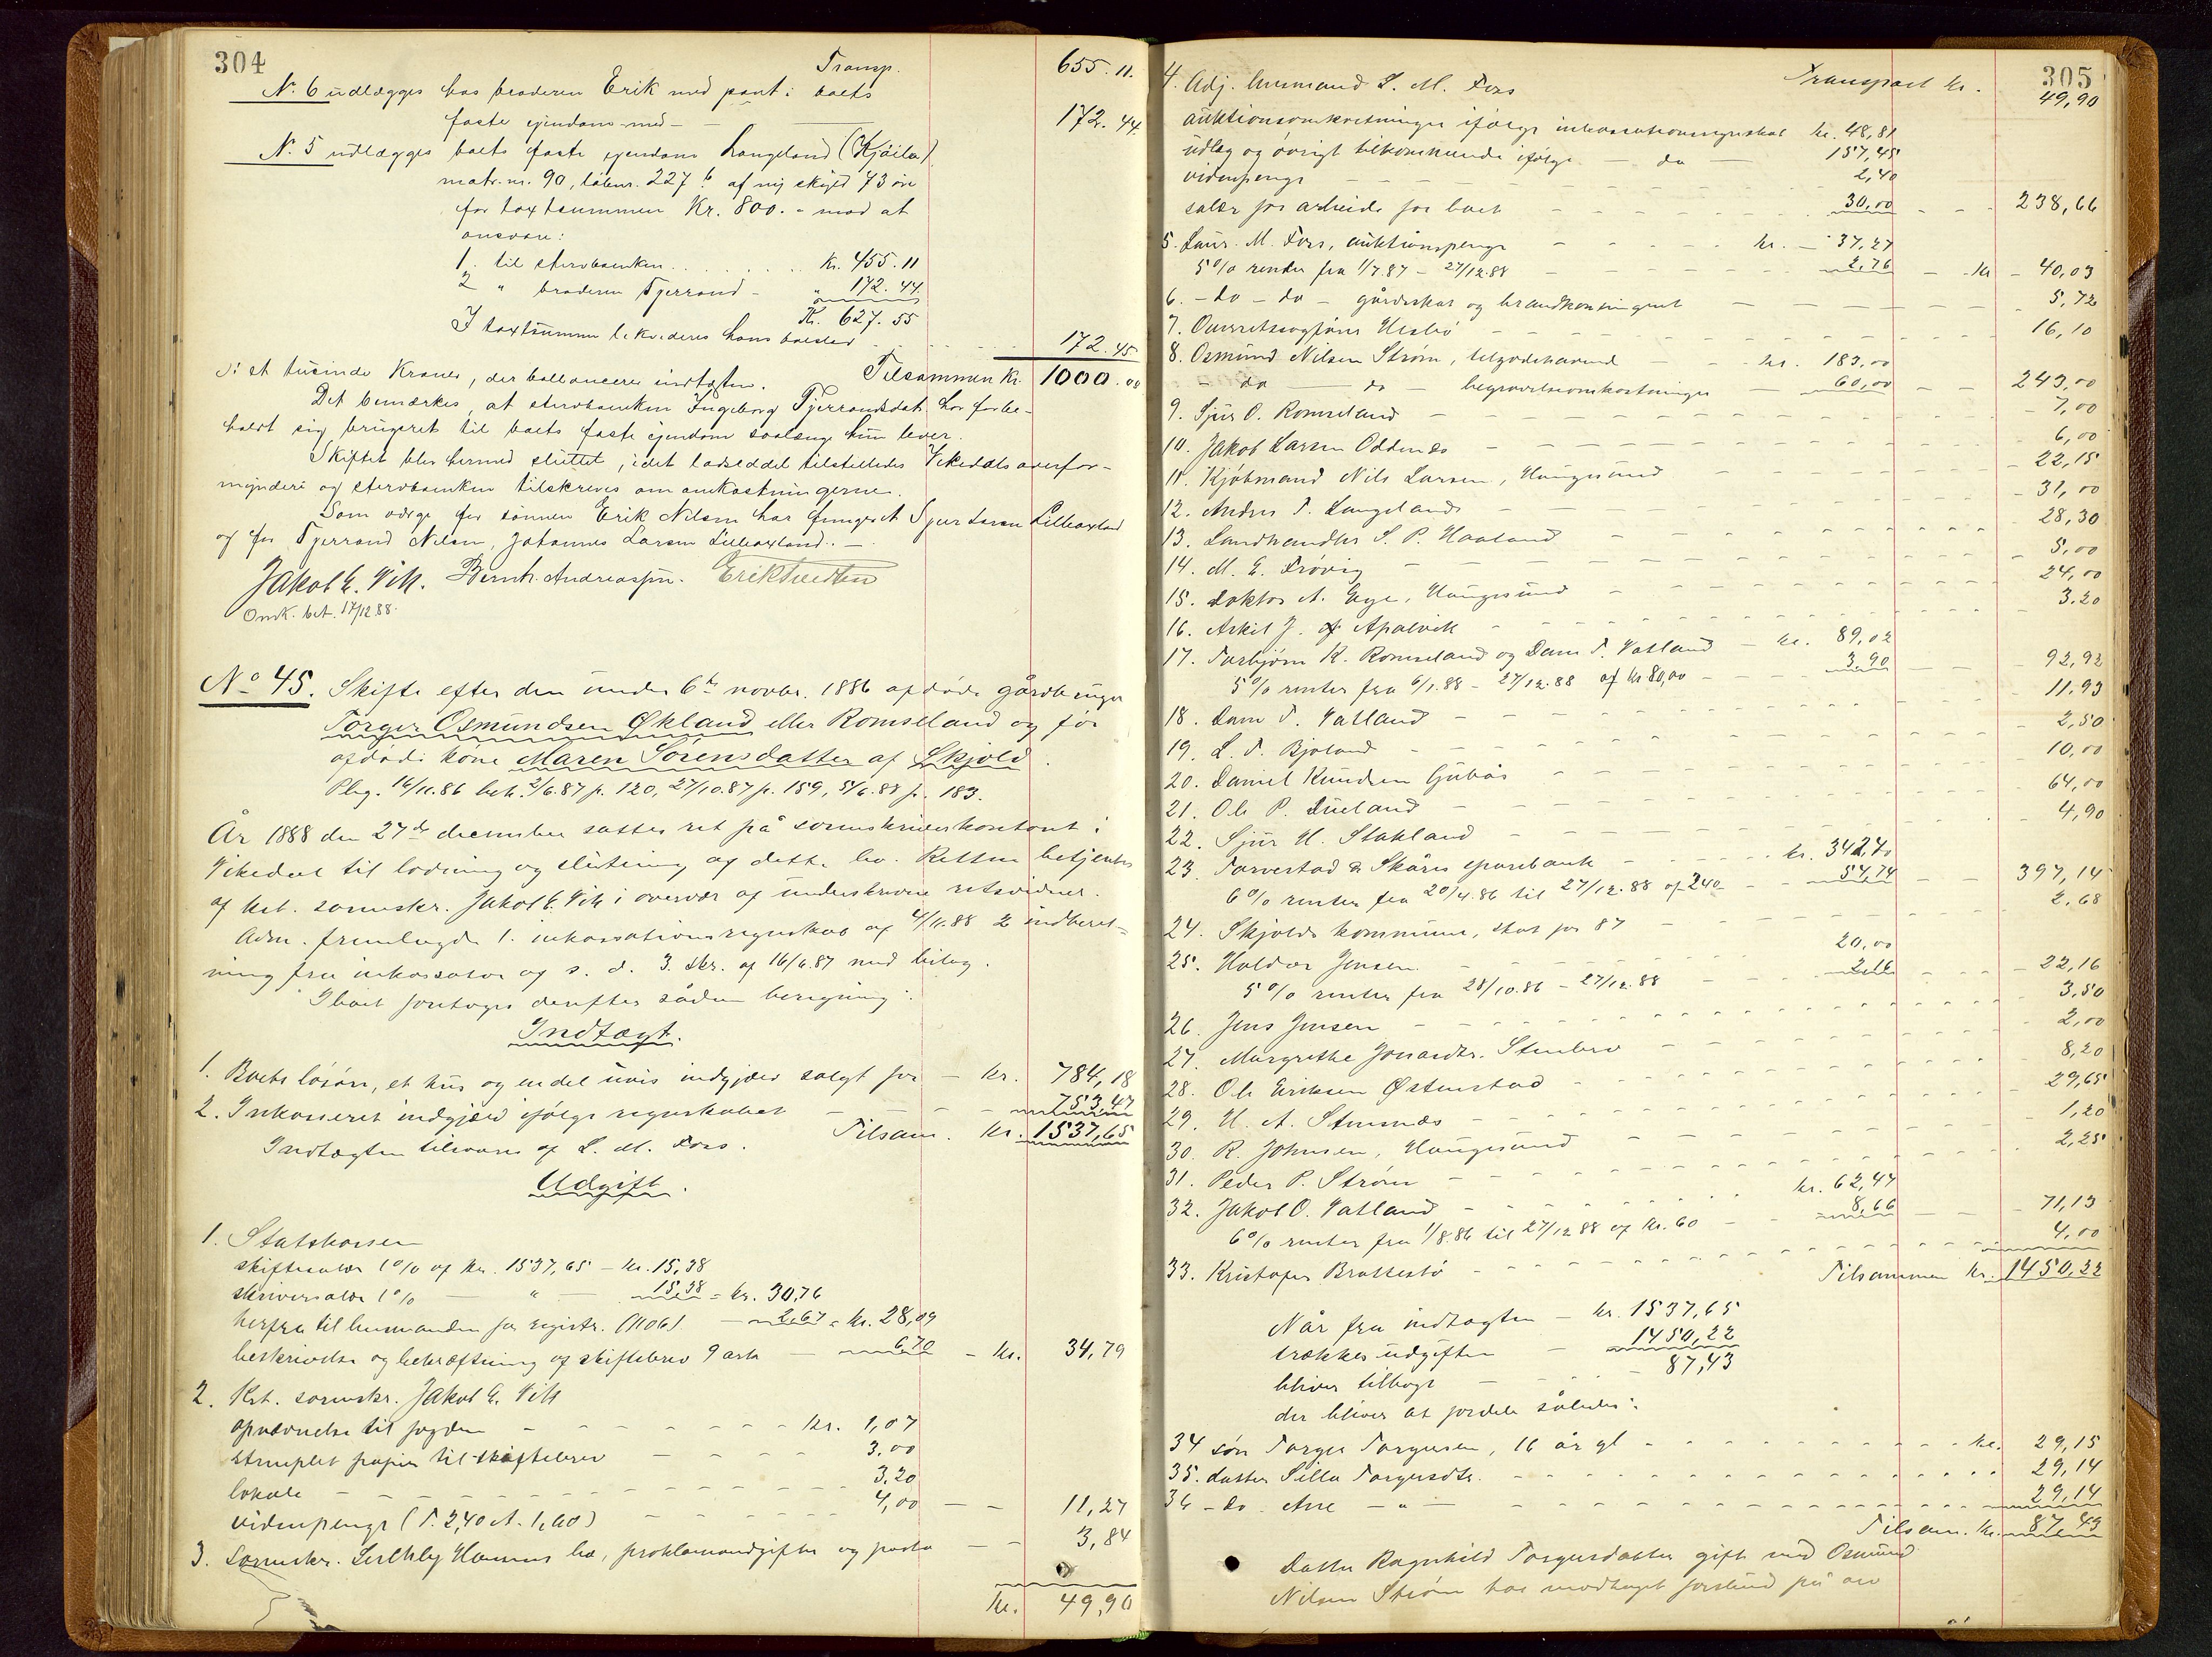 304
Transp. 655.11.
No. 6 udlægges hos broderen Erik med pant i boets
faste ejendom med — 172.44
No. 5 udlægges boets faste ejendom Langeland (Kjøila)
matr. nr. 90, løbenr. 227 b af ny skyld 73 øre
for taxtsummen Kr. 800. - mod at
ansvare:
1. til stervboenken . . . . . . Kr. 455.11
2 " broderen Tjerrand - " 172.44
Kr. 627.55
I taxtsummen likvideres hans boeslod . . . . . 172.45
ɔ: et tusinde Kroner, der ballancerer indtægten. Tilsammen Kr. 1000.00
Det bemærkes, at stervboenken Ingeborg Tjerrandsdat. har forbe-
holdt sig brugsret til boets faste ejendom saalænge hun lever.
Skiftet blev hermed sluttet, idet lodseddel tilstilledes Vikedals overfor-
mynderi og stervboenken tilskreves om omkostningerne.
Som værge for sønnen Erik Nilsen har fungeret Sjur Larsen Lilleaxland
og for Tjerrand Nilsen, Johannes Larsen Lilleaxland. —
Jakob E. Vik. Bernh. Andreassen. Erik Tvedten
Omk. bet. 17/12 88.
No 45. Skifte efter den under 6te novbr. 1886 afdøde gårdbruger
Torger Osmundsen Økland eller Romseland og før
afdøde kone Maren Sørensdatter af Skjold.
Plig. 16/11.86 beh. 2/6.87 p. 120, 27/10.87 p. 159, 5/6.88 p. 183.
År 1888 den 27de december sattes ret på sorenskriverkontoret i
Vikedal til lodning og slutning af dette bo. Retten betjentes
af kst. sorenskr. Jakob E. Vik i overvær af underskrevne retsvidner.
Adm. fremlagde 1. inkassationsregnskab af 4/11.88 2 indberet-
ning fra inkassator af s. d. 3. Skr. af 16/6.87 med bilag.
I boet foretoges derefter sådan beregning:
Indtægt.
1. Boets løsøre, et hus og en del uvis indgjæld solgt for — kr. 784,18
2. Inkasseret indgjæld ifølge regnskabet — 753,47
Indtægten tilsvares af L. M. Fors. Tilsam. kr. 1537,65
Udgift.
1. Statskassen
skiftesalær 1% af kr. 1537,65 — kr. 15,38
skriversalær 1% — " — 15,38 = kr. 30,76
herfra til lensmanden for registr. — 2,67 = kr. 28,09
beskrivelse og bekræftning af skiftebrev 9 ark — 6,70 - kr. 34,79
2. Kst. sorenskr. Jakob E. Vik
opnævnelse til fogden - - - - - kr. 1,07
stemplet papir til skiftebrev — - - - 3,00
lokale - - - - - 3,20
vidnepenge (T. 2,40 A. 1,60) - - - 4,00 - - 11,27
3. Sorenskr. bo, proklamaudgifter og porto - - 3,84
kr. 49,90
305
Transport kr. 49,90
4. Adj. lensmand L. M. Fors
auktionsomkostninger ifølge inkassationsregnskab kr. 48,81
udlæg og øvrigt tilkommende ifølge — do — 157,45
vidnepenge - - - 2,40
salær for arbeide for boet - - - 30,00 - - 238,66
5. Laur. M. Fors, auktionspenge - - - kr. — 37,27
5% renter fra 1/7.87 - 27/12.88 - - - 2,76 - kr - 40,03
6. - do - do - gårdsskat og brandkontingent - - - 5,72
7. Overretssagfører Hesbø - - - 16,10
8. Osmund Nilsen Strøm, tilgodehavend - kr. 183,00
- do — do begravelsesomkostninger — 60,00 - - 243,00
9. Sjur O. Romseland - - - 7,00
10. Jakob Larsen Oddenæs - - - 6,00
11. Kjøbmand Nils Larsen, Haugesund - - - 22,15
12. Anders T. Langeland - - - 31,00
13. Landhandler S. P. Haaland - - - 28,30
14. M. E. Frøvig - - - 5,00
15. Doktor A. Eye, Haugesund - - - 24,00
16. Askil J. Apalvik - - - 3.20
17. Torbjørn K. Romseland og Dam T. Vatland — kr. 89,02
5% renter fra 6/1.88 - 27/12.88 af kr 80,00 - - 3,90 - - 92,92
18. Dam T. Vatland - - - 11,93
19. L. T. Bjoland - - - 2,50
20. Daniel Knudsen - - - 10,00
21. Ole P. Dueland - - - 64,00
22. Sjur H. Stakland - - - 4,90
23. Torvestad & Skåre sparebank - - kr. 342,40
6% renter fra 20/4.86 til 27/12.88 af 240 - - 54,74 - - 397,14
24. Skjolds kommune, skat for 87 - - - 2,68
25. Haldor Jensen - - - 20,00
5% renter fra 28/10.86 - 27/12.88 - - 2,16 - - 22,16
26. Jens Jensen - - - 3,50
27. Margrethe Jonasdtr. Stenbro - - - 2,00
28. Ole Eriksen Østenstad - - - 8,20
29. H. A. Stensnæs - - - 29,65
30. R. Johnsen, Haugesund - - - 1,20
31. Peder P. Strøm - - - 2,25
32. Jakob O. Vatland - - - kr. 62,47
6% renter fra 1/8.86 til 27/12 88 af kr. 60 - - 8,66 - - 71,13
33. Kristofer Brattestø - - - 4,00
Tilsammen kr. 1450,22
Når fra indtægten — kr. 1537,65
trækkes udgiften — 1450,22
bliver tilbage - - - 87,43
der bliver at fordele således:
34 søn Torger Torgersen, 16 år gl - - - kr. 29,15
35. datter Silla Torgersdtr. - - - 29,14
36 - do - Ane - " - - - - 29,14
Tilsam. kr. 87,43
Datter Ragnhild Torgersdatter gift med Osmund
Nilsen Strøm har modtaget forskud på arv